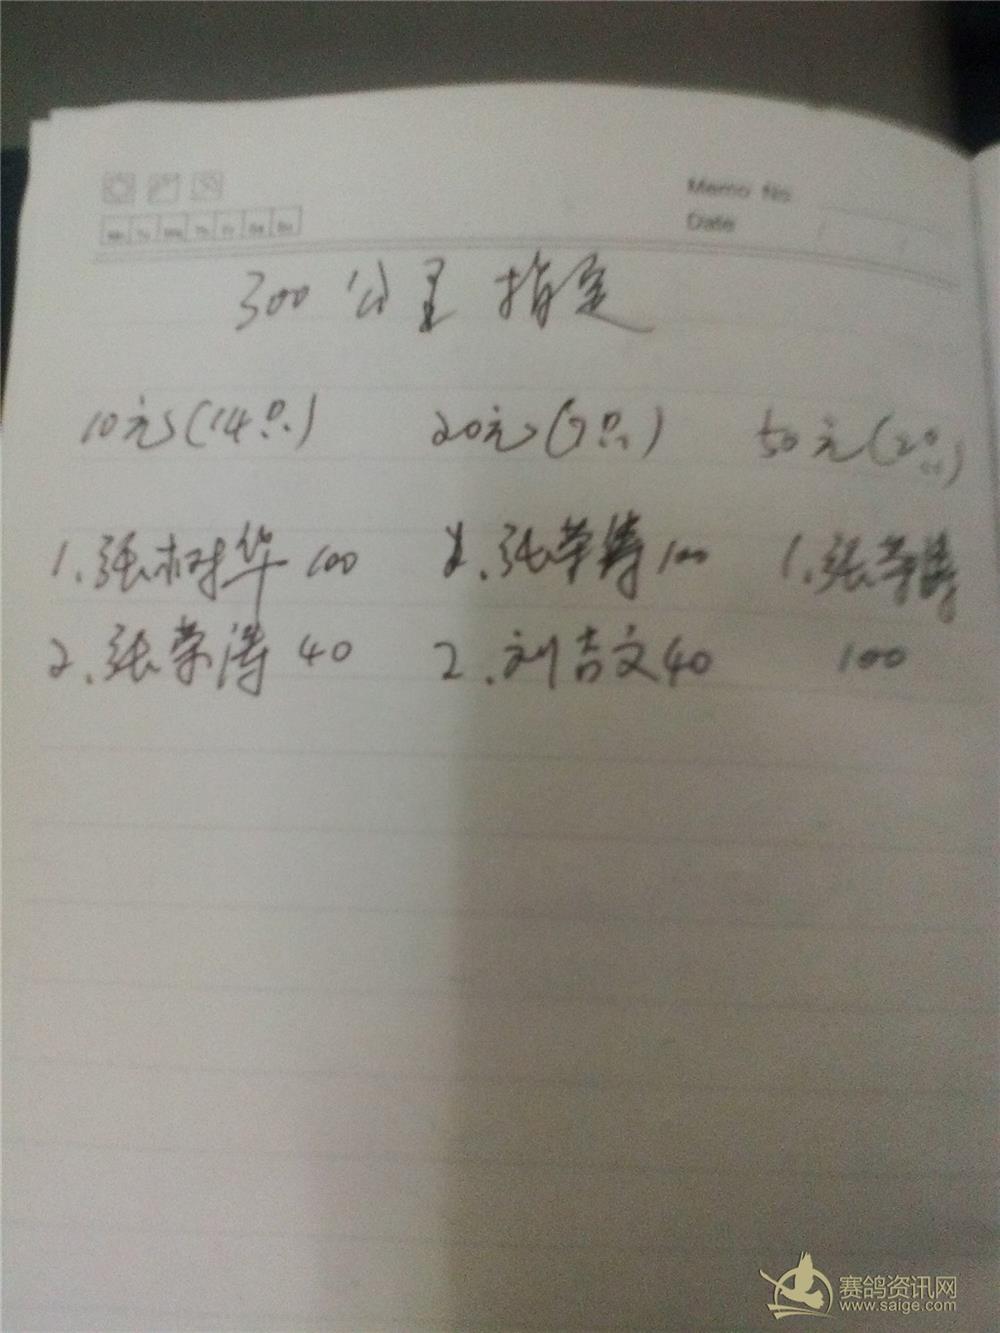 Memo No
Date
Mo Tu We Th Fr Sa Su
300公里指定
10元(14只) 20元(7只) 50元(2只)
1.张树华 100 1.张荣涛 100 1.张荣涛
2.张荣涛 40 2.刘吉文 40 100
赛鸽资讯网
www.saige.com